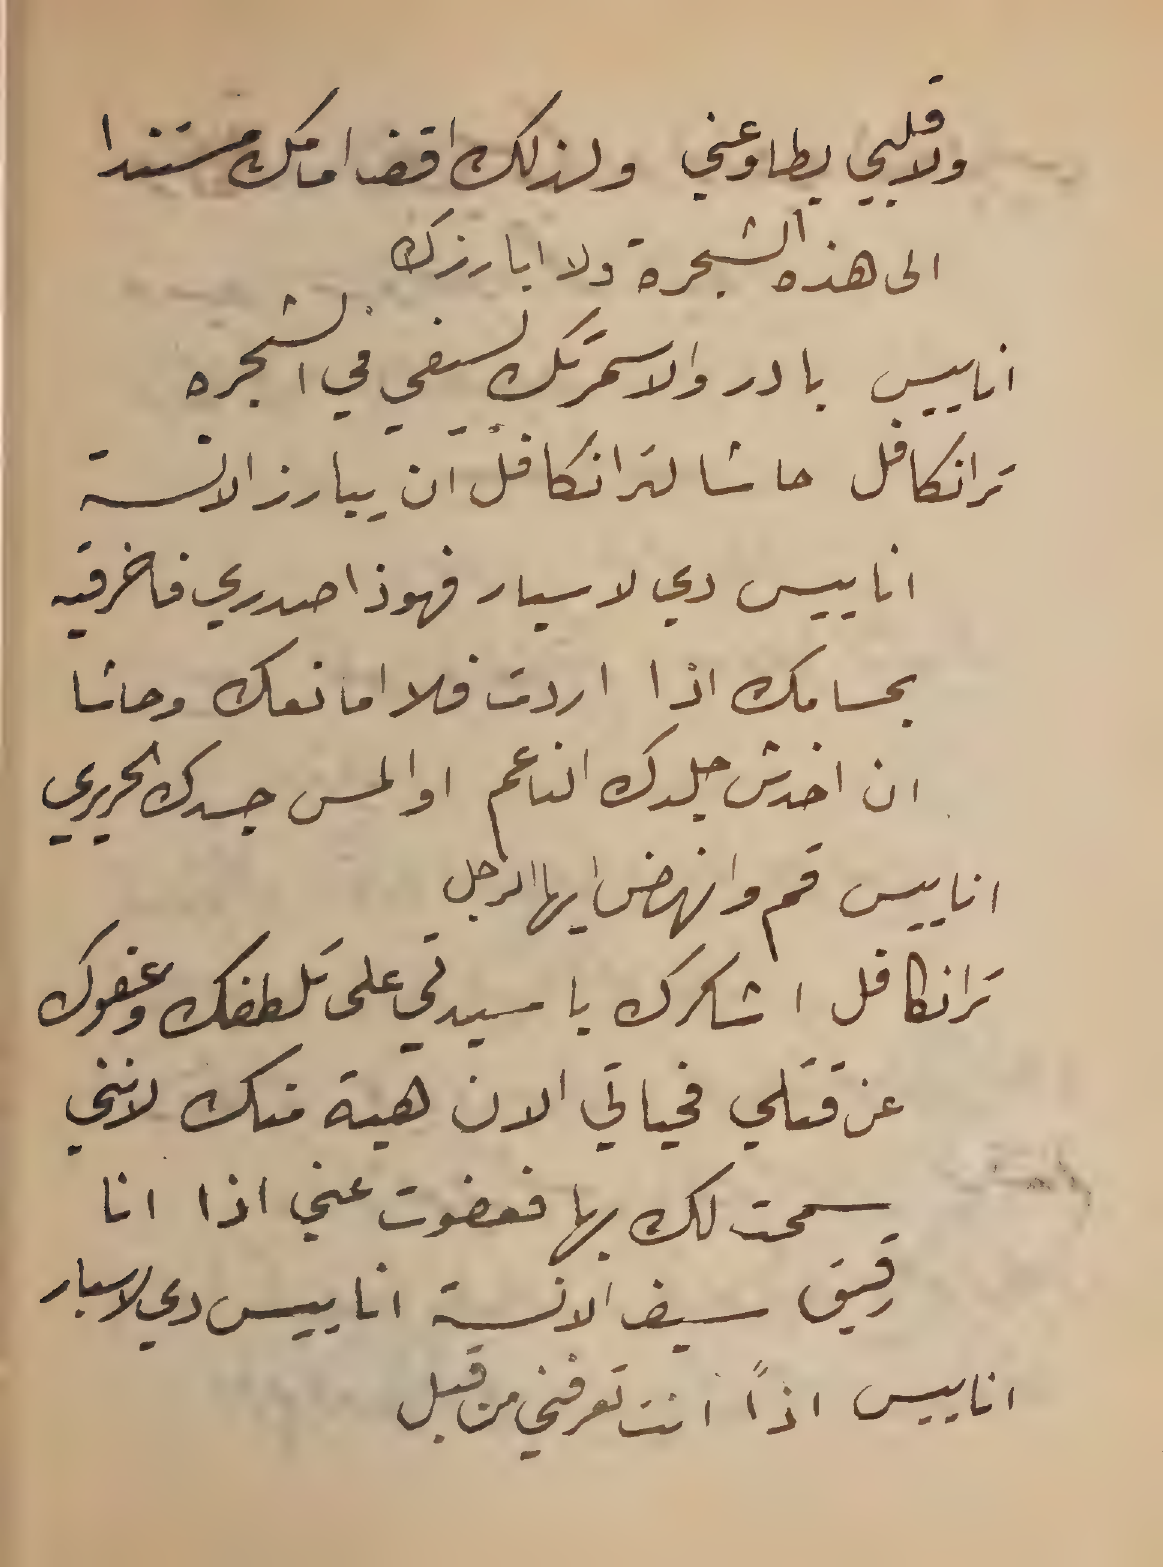 ولا قلبي يطاوعني ولذلك اقف امامك مستندا
الى هذه الشجرة ولا ابارزك
اناييس بادر والا سمرتك بسيفي في الشجره
ترانكافل حاشا لترانكافل ان يبارز الانسة
اناييس دي لاسيار فهوذا صدري فاخرقيه
بحسامك اذا اردت فلا امانعك وحاشا
ان اخدش جلدك الناعم او المس جسدك الحريري
اناييس قم وانهض ايها الرجل
ترانكافل اشكرك يا سيدتي على تلطفك وعفوك
عن قتلي فحياتي الان هبة منك لانني
سمحت لك بها فعفوت عني اذا انا
رقيق سيف الانسة اناييس دي لاسيار
اناييس اذاً انت تعرفني من قبل